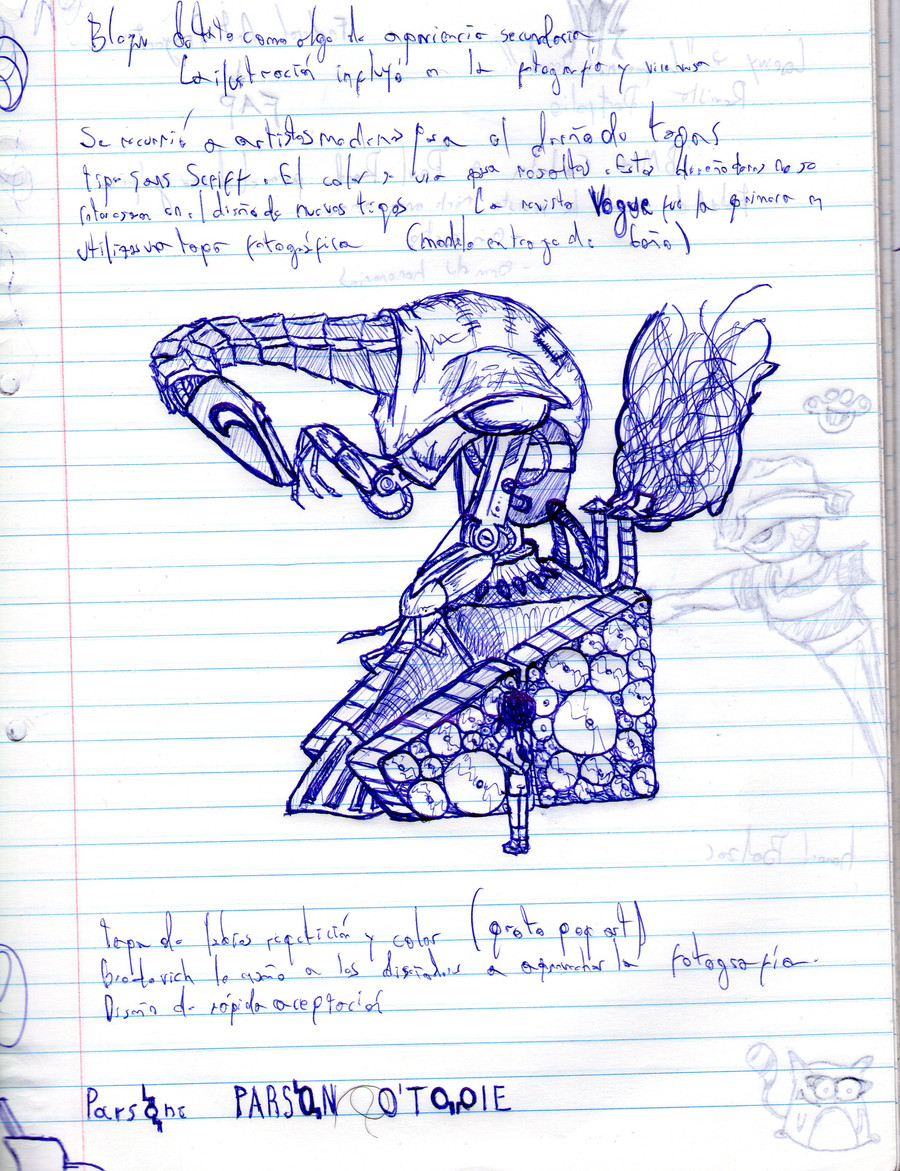 Bloque de texto como algo de apariencia secundaria
La ilustración influyó en la fotografía y viceversa
Se recurrió a artistas modernos para el diseño de tapas
tipo Sans Seriff. El color se usa para resaltar. Estos diseñadores no se
interesan en el diseño de nuevos tipos La revista Vogue fue la primera en
utilizar una tapa fotográfica (modelo en traje de baño)
tapa de labios repetición y color (proto pop art)
Brodovich le enseñó a los diseñadores a aprovechar la fotografía.
Diseño de rápida aceptación
Parsons PARSON O'TOOLE